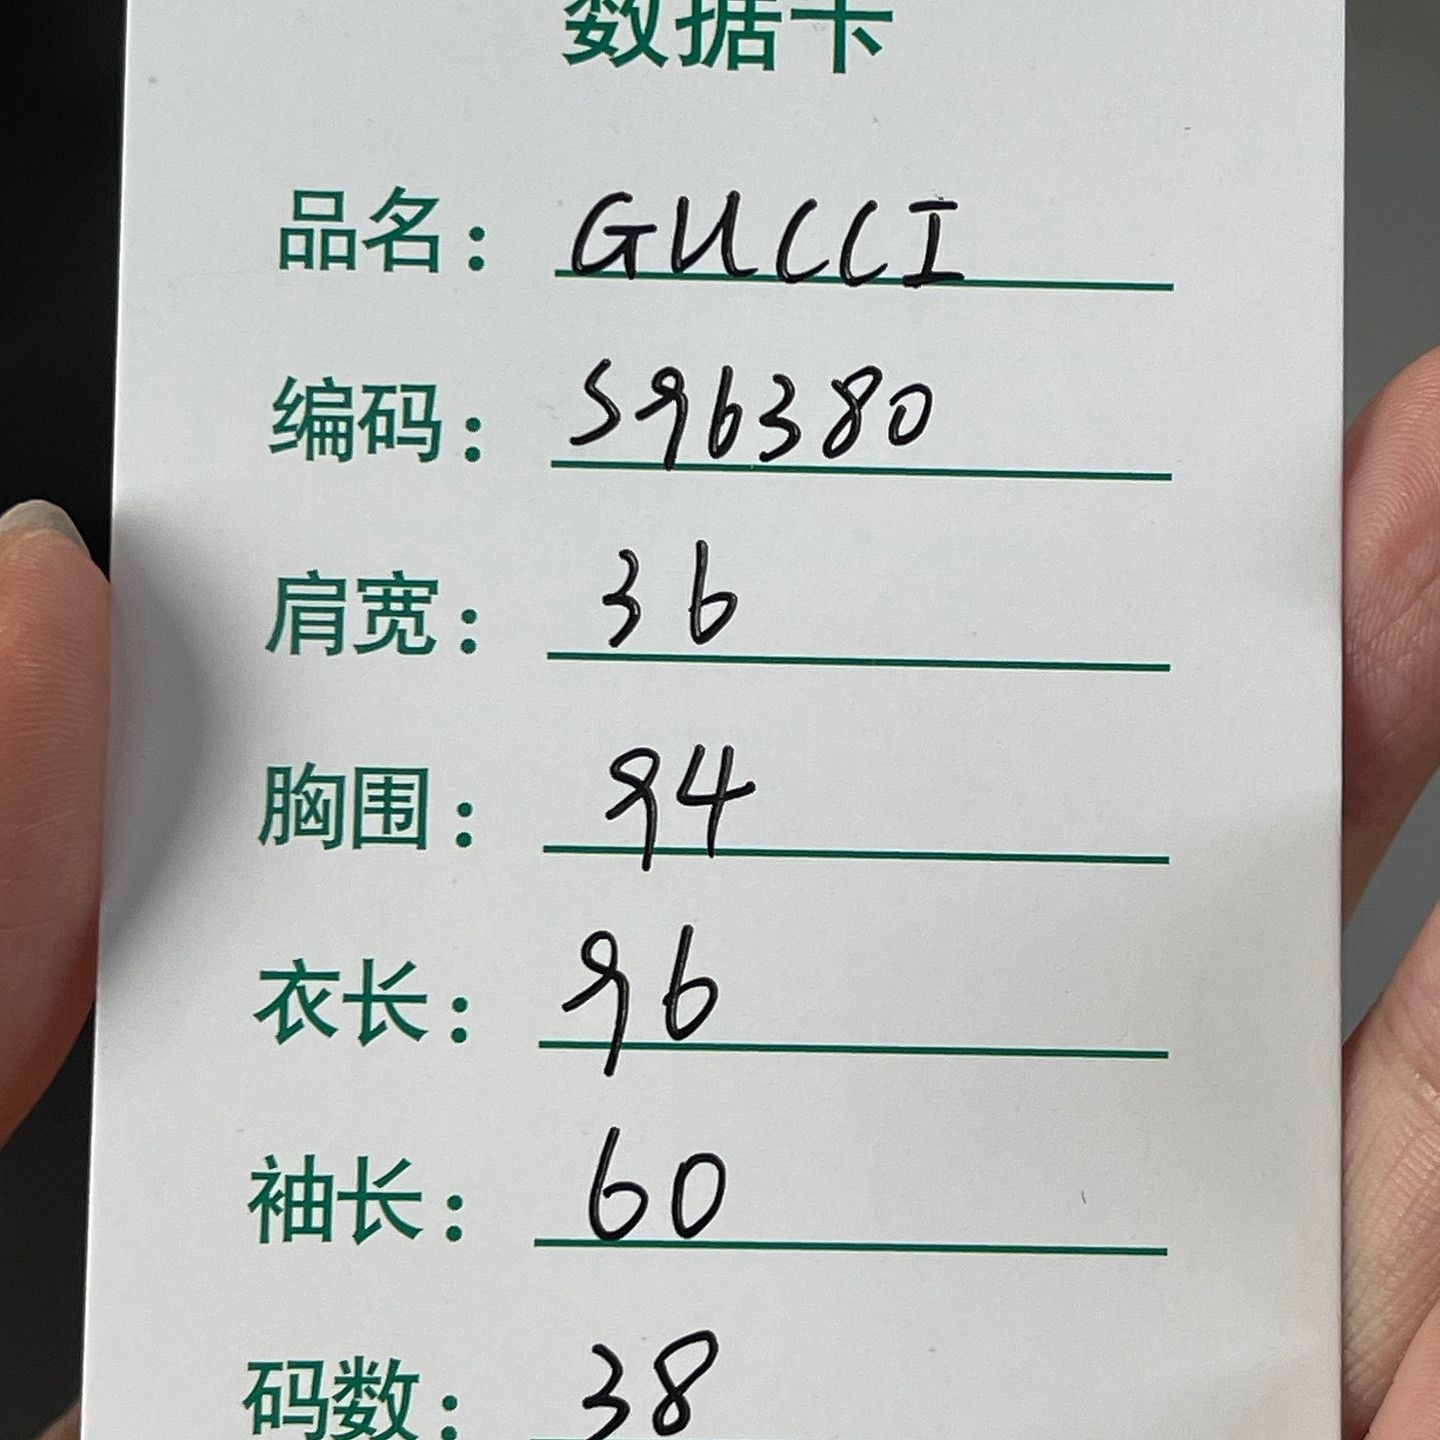 数据卡
品名：GUCCI
编码：S96380
肩宽：36
胸围：94
衣长：96
袖长：60
码数：38